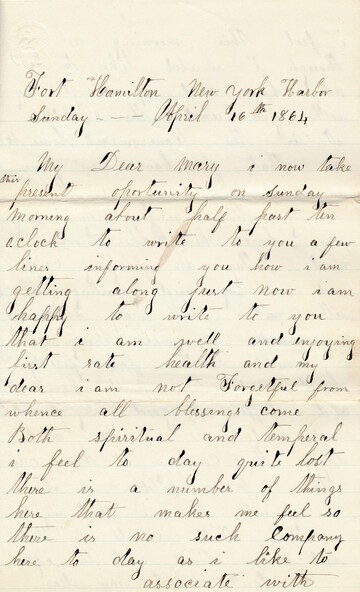 Fort Hamilton New York Harbor
Sunday --- April 16th 1864
My Dear Mary i now take
this
present oportunity on sunday
Morning about half past ten
oclock to write to you a few
lines informing you how i am
getting along just now i am
happy to write to you
that i am well and enjoying
first rate health and my
dear i am not Forgetful from
whence all blessings come
Both spiritual and temperal
i feel to day quite lost
there is a number of things
here that makes me feel so
there is no such Company
here to day as i like to
associate with